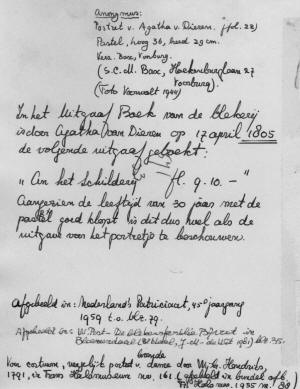 Anonymus:
Portret v. Agatha v. Dieren. (fol. 22)
Pastel, hoog 36, breed 29 cm.
Verz. Baxc, Voorburg.
(S.C.M. Baxc, Hoekenburglaan 27
Voorburg)
(Foto 1944)
In het Uitgaaf Boek van de blekerij
is door Agatha van Dieren op 17 april 1805
de volgende uitgaaf geboekt:
"An het Schilderij fl. 9.10. — "
Aangezien de leeftijd van 30 jaar met de
pastel goed klopt is dit dus wel als de
uitgave voor het portretje te beschouwen.
Afgebeeld in: Nederland's Patriciaat, 45e jaargang
1959 t.o. blz. 79.
Afgebeeld in: W. Post - De blekersfamilie in
Bloemendaal 1961) blz. 35.
Voor costuum, vergelijk portret v. dame door W. Hendriks,
1791, in Frans Halsmuseum no. 161 (afgebeeld in